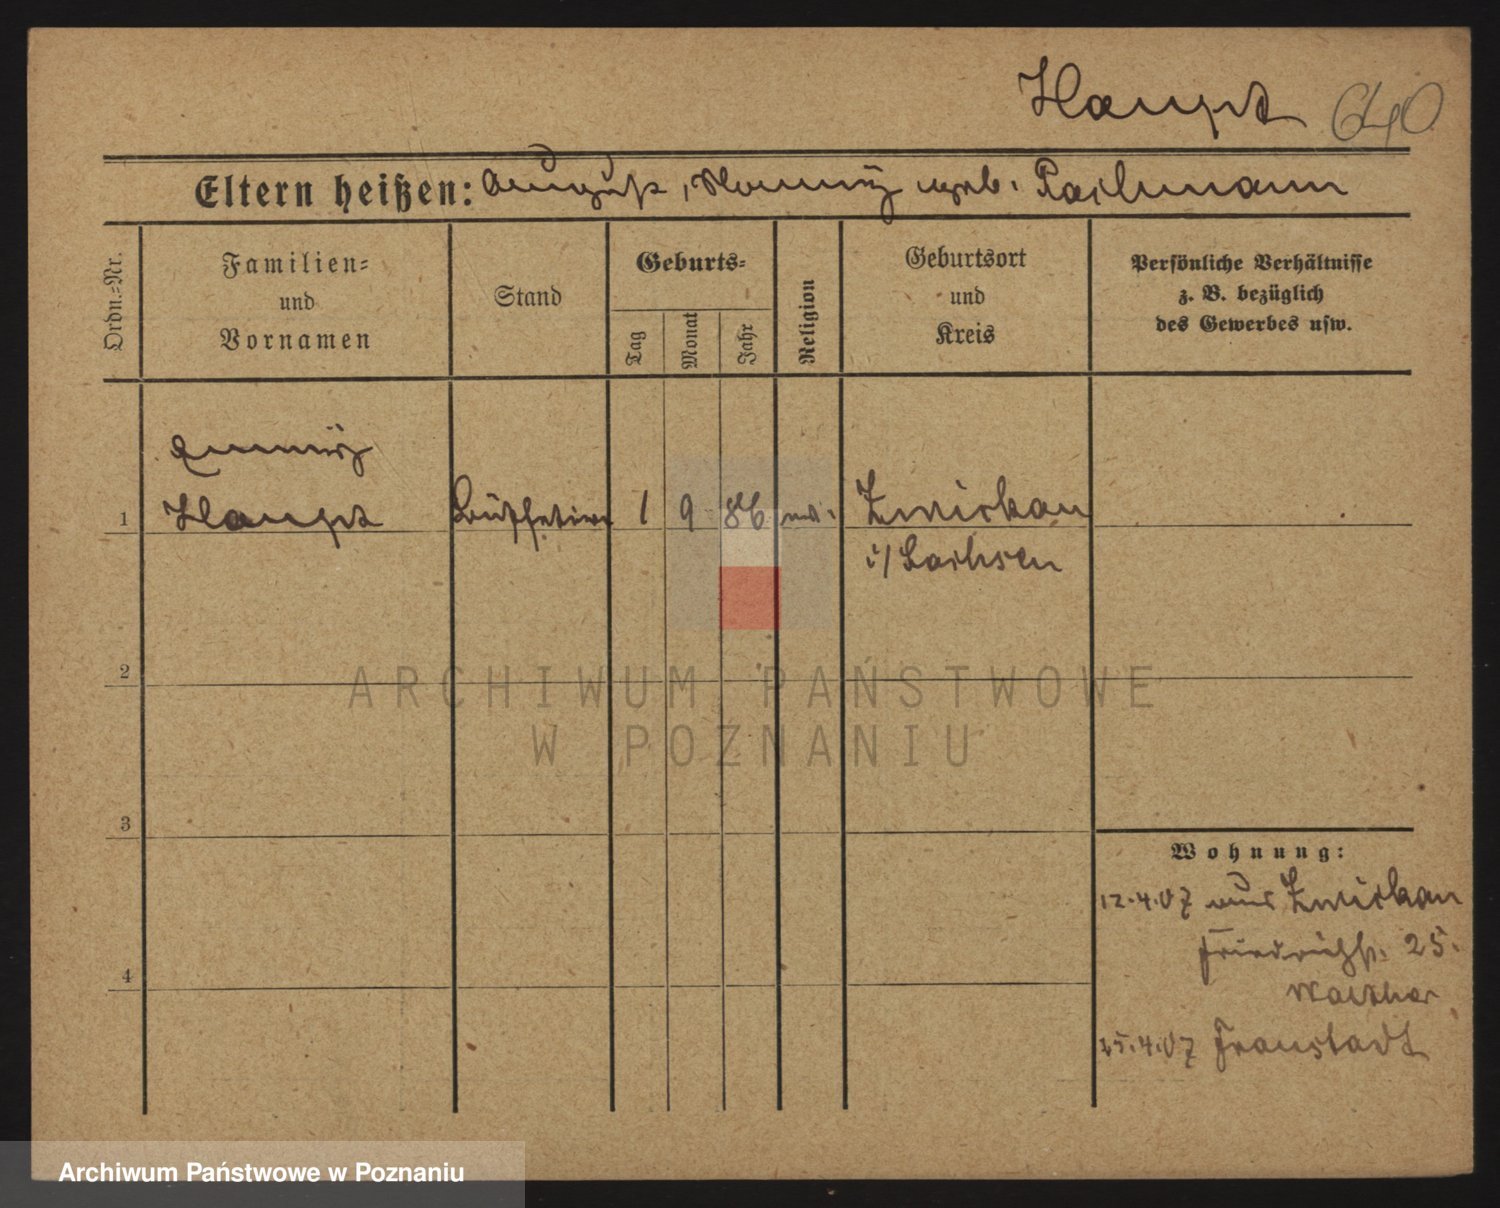 Haupt 640
Eltern heißen: August, geb.
Ordn.=Nr.
Familien=
und
Vornamen
Stand
Geburts=
Tag
Monat
Jahr
Religion
Geburtsort
und
Kreis
Persönliche Verhältnisse
z. B. bezüglich
des Gewerbes usw.
1 Haupt 1 9 86 Zwickau
i/ Sachsen
2
3
4
Wohnung:
12.4.07 aus Zwickau
Friedrichst. 25.
15.4.07 Fraustadt
ARCHIWUM PAŃSTWOWE
W POZNANIU
Archiwum Państwowe w Poznaniu